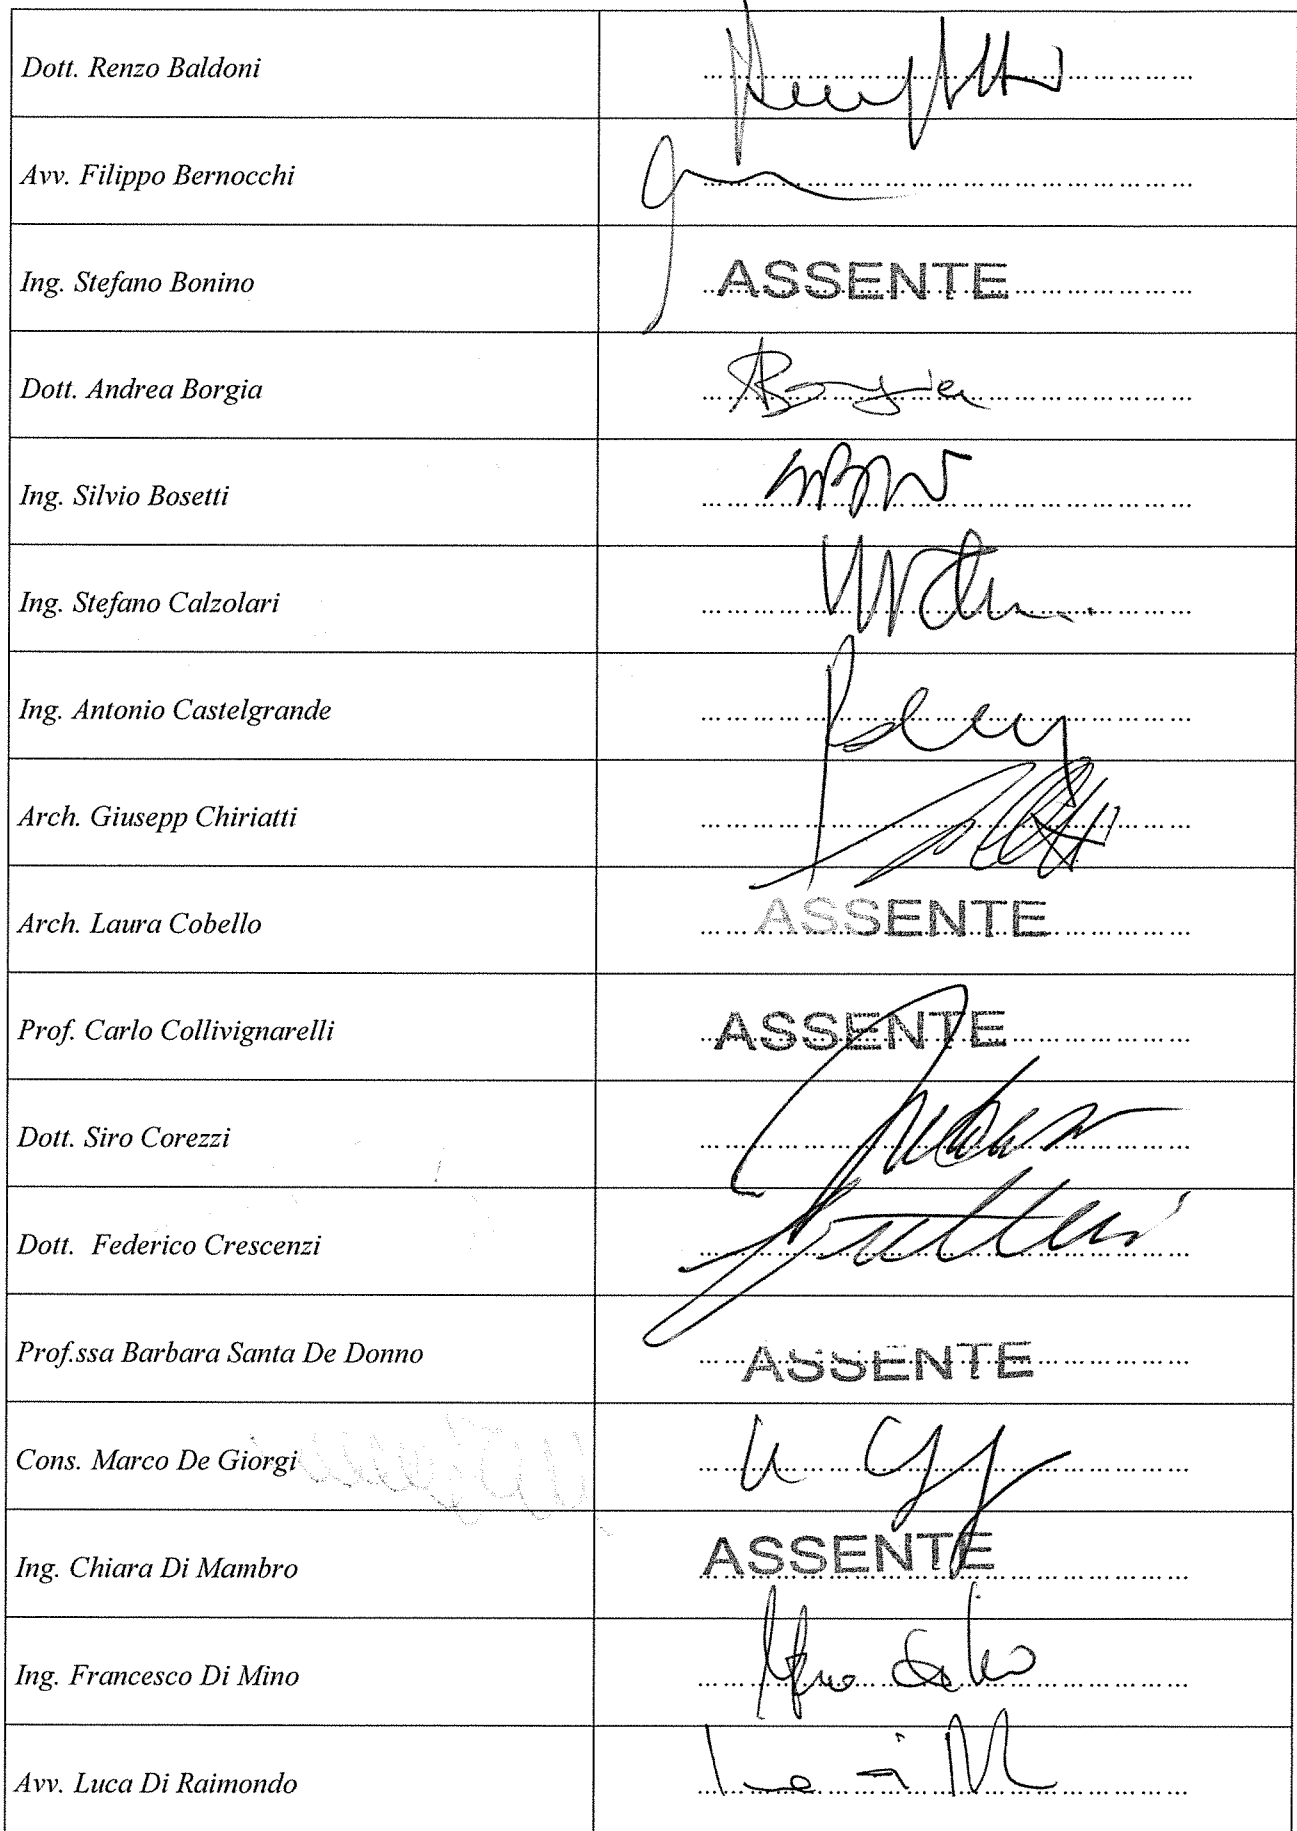 Dott. Renzo Baldoni
Avv. Filippo Bernocchi
Ing. Stefano Bonino ASSENTE
Dott. Andrea Borgia
Ing. Silvio Bosetti
Ing. Stefano Calzolari
Ing. Antonio Castelgrande
Arch. Giusepp Chiriatti
Arch. Laura Cobello ASSENTE
Prof. Carlo Collivignarelli ASSENTE
Dott. Siro Corezzi
Dott. Federico Crescenzi
Prof.ssa Barbara Santa De Donno ASSENTE
Cons. Marco De Giorgi
Ing. Chiara Di Mambro ASSENTE
Ing. Francesco Di Mino
Avv. Luca Di Raimondo